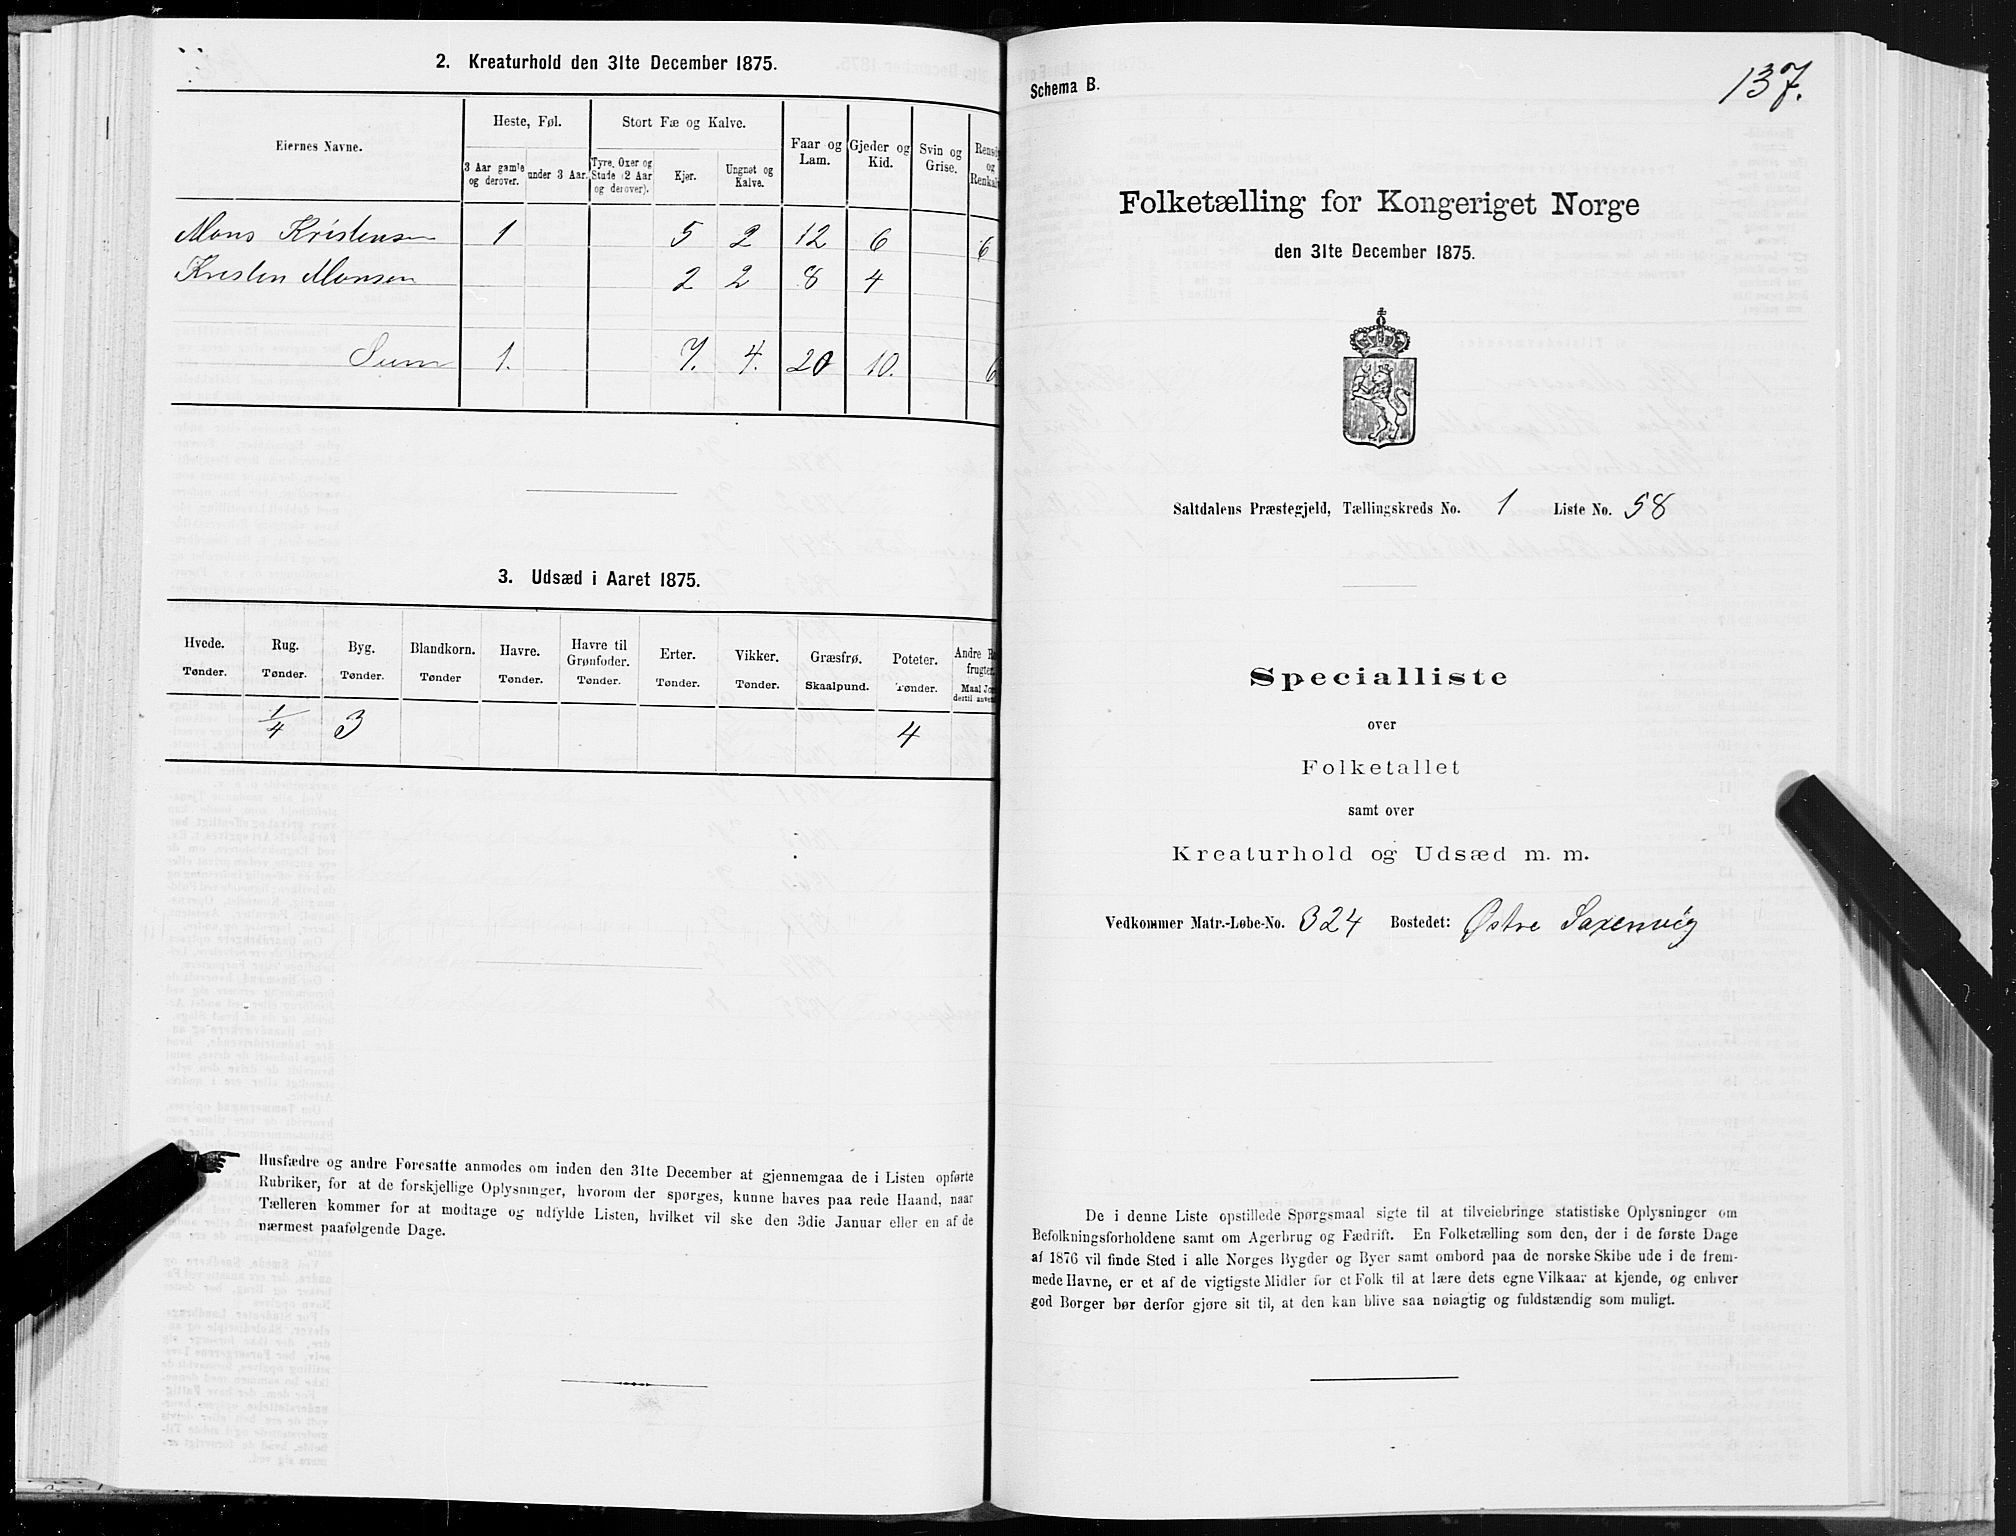 2. Kreaturhold den 31te December 1875.
Eiernes Navne.
Heste, Føl.
Stort Fæ og Kalve.
Faar og Lam.
Gjeder og Kid.
Svin og Grise.
3 Aar gamle og derover.
under 3 Aar.
Tyre, Oxer og Stude (2 Aar og derover).
Kjør.
Ungnøt og Kalve.
Mons Kristensen 1 5 2 12 6 6
Kristen Monsen 2 2 8 4
Sum 1. 7. 4. 20 10. 6
3. Udsæd i Aaret 1875.
Hvede. Rug. Byg. Blandkorn. Havre. Havre til Grønfoder. Erter. Vikker. Græsfrø. Poteter. Andre
Tønder. Tønder. Tønder. Tønder Tønder. Tønder. Tønder. Tønder. Skaalpund. Tønder.
1/4 3 4
Husfædre og andre Foresatte anmodes om inden den 31te December at gjennemgaa de i Listen opførte
Rubriker, for at de forskjellige Oplysninger, hvorom der spørges, kunne haves paa rede Haand, naar
Tælleren kommer for at modtage og udfylde Listen, hvilket vil ske den 3die Januar eller en af de
nærmest paafølgende Dage.
Schema B.
137.
Folketælling for Kongeriget Norge
den 31te December 1875.
Saltdalens Præstegjeld, Tællingskreds No. 1 Liste No. 58
Specialliste
over
Folketallet
samt over
Kreaturhold og Udsæd m. m.
Vedkommer Matr.-Løbe-No. 324 Bostedet: Østre Saxenvig
De i denne Liste opstillede Spørgsmaal sigte til at tilveiebringe statistiske Oplysninger om
Befolkningsforholdene samt om Agerbrug og Fædrift. En Folketælling som den, der i de første Dage
af 1876 vil finde Sted i alle Norges Bygder og Byer samt ombord paa de norske Skibe ude i de frem-
mede Havne, er et af de vigtigste Midler for et Folk til at lære dets egne Vilkaar at kjende, og enhver
god Borger bør derfor gjøre sit til, at den kan blive saa nøiagtig og fuldstændig som muligt.